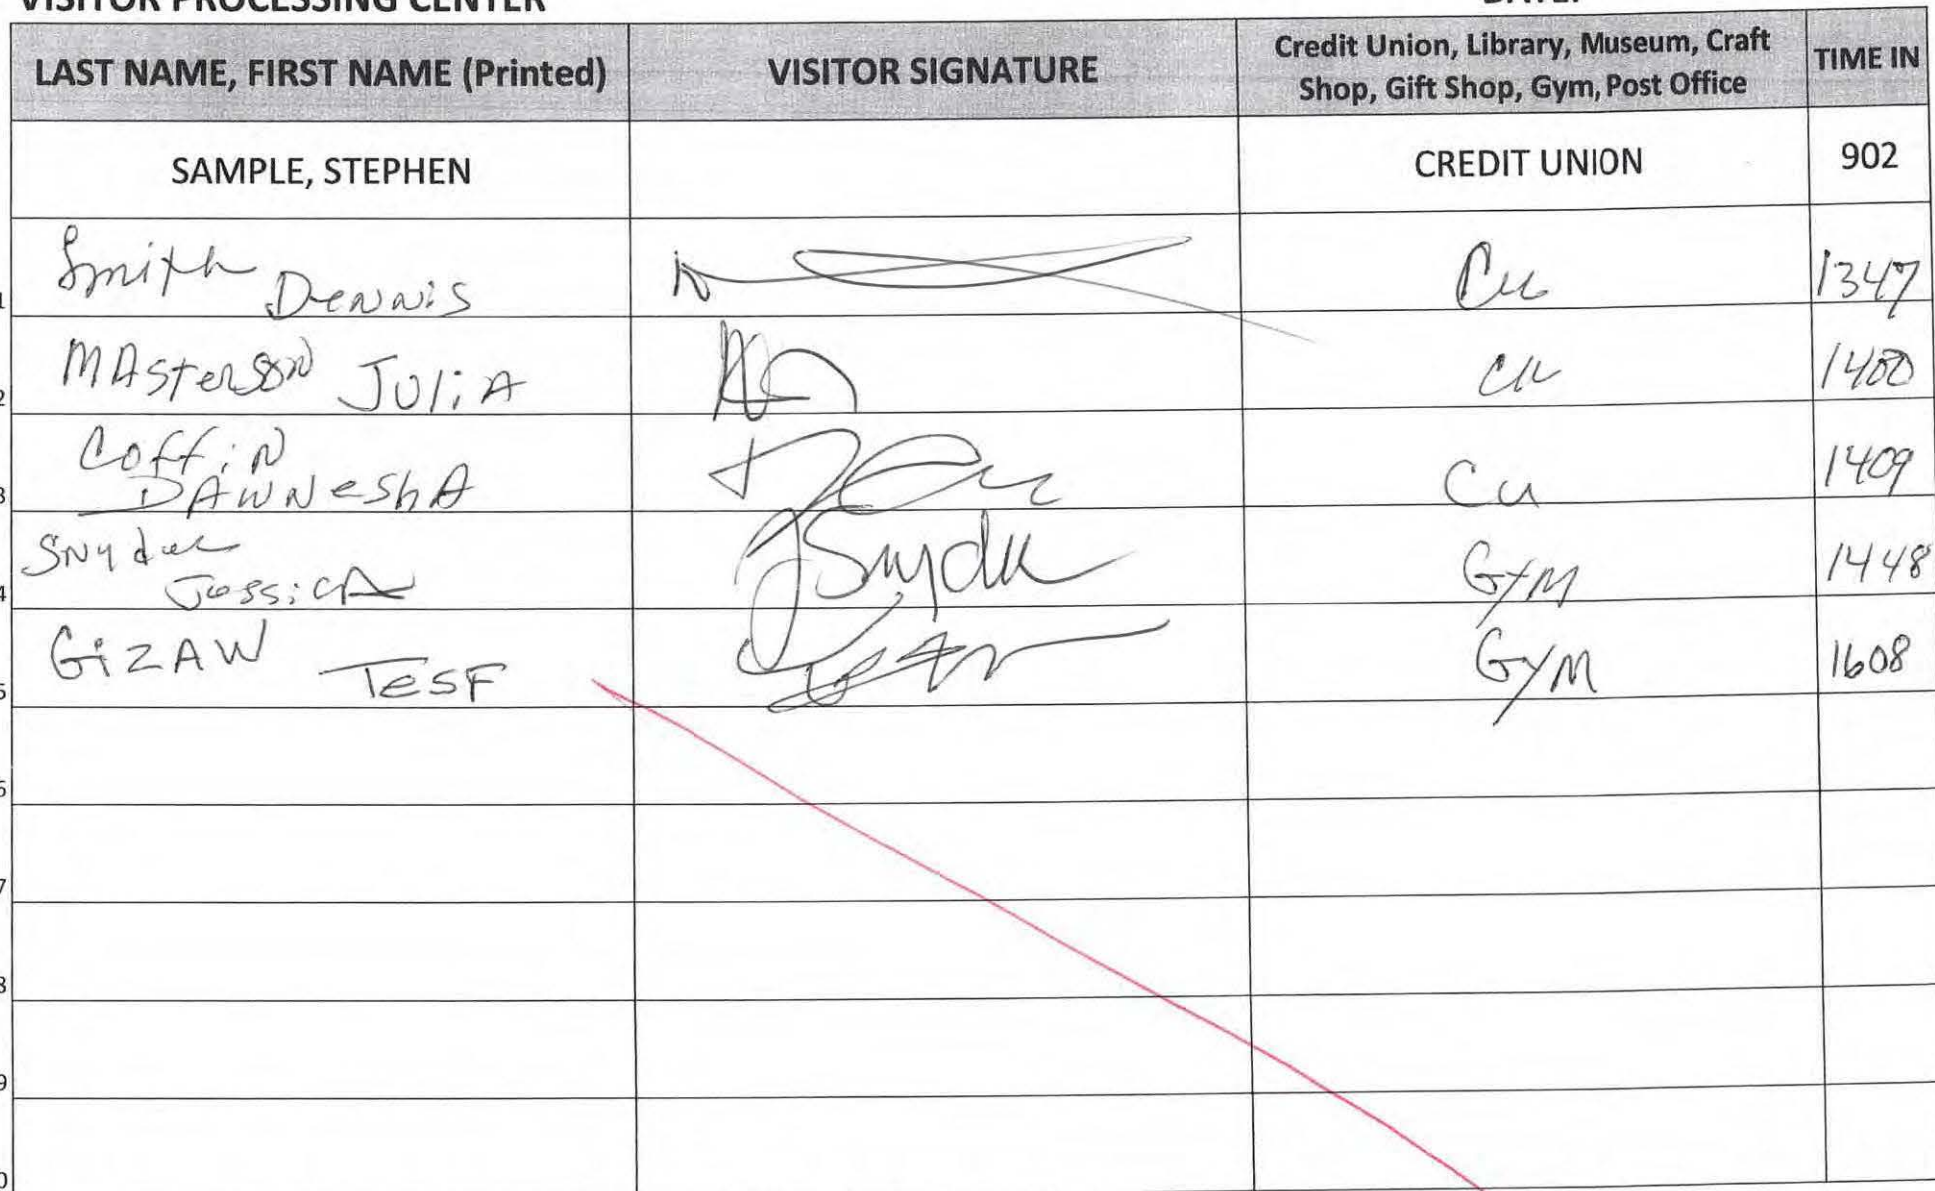 VISITOR PROCESSING CENTER
DATE:
LAST NAME, FIRST NAME (Printed) VISITOR SIGNATURE Credit Union, Library, Museum, Craft Shop, Gift Shop, Gym, Post Office TIME IN
SAMPLE, STEPHEN CREDIT UNION 902
1 Smith Dennis Cu 1347
2 MAsterson JuliA Cu 1400
3 Coffin DAWNeshA Cu 1409
4 Snyder JessicA JSnyder GYM 1448
5 GiZAW TesF GYM 1608
6
7
8
9
0